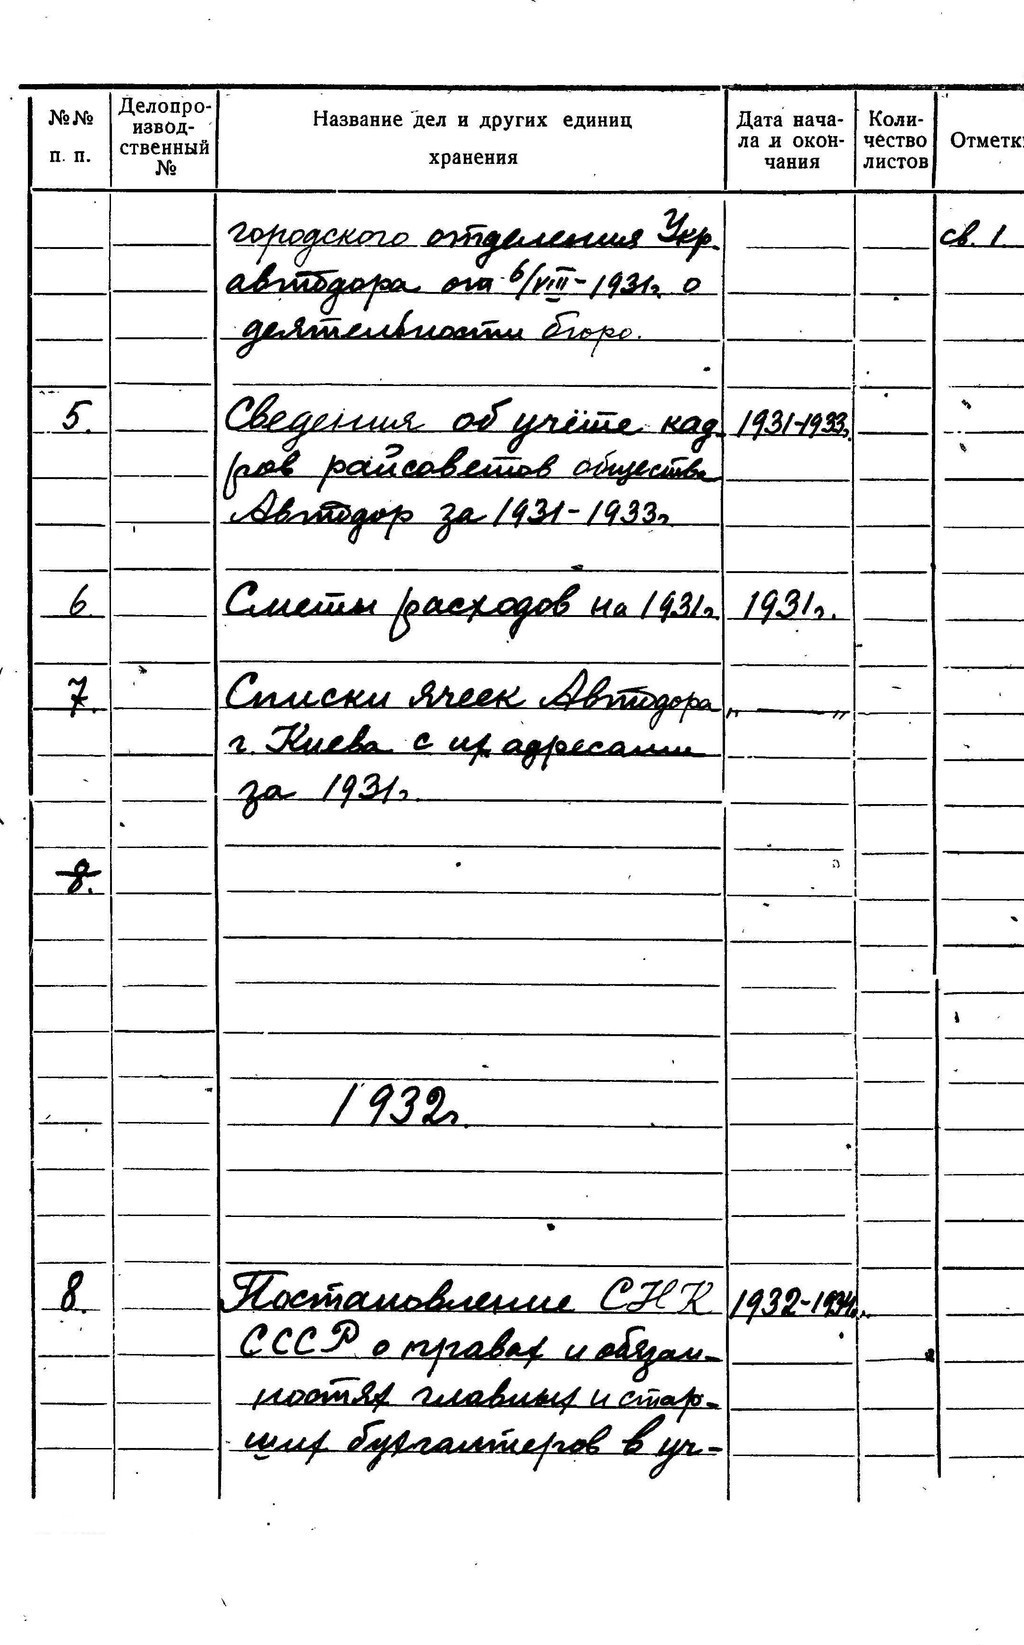 №№ п. п. Делопроизводственный № Название дел и других единиц хранения Дата начала и окончания Количество листов Отметк
городского отделения Укр. св. 1
автодора от 6/VIII-1931г. о
деятельности бюро.
5. Сведения об учёте кад- 1931-1933г.
ров райсоветов общества
Автодор за 1931-1933г.
6 Сметы расходов на 1931г. 1931г.
7. Списки ячеек Автодора „ — "
г. Киева с их адресами
за 1931г.
8.
1932г.
8. Постановление СНК 1932-1934г.
СССР о правах и обязан-
ностях главных и стар-
ших бухгалтеров в уч-